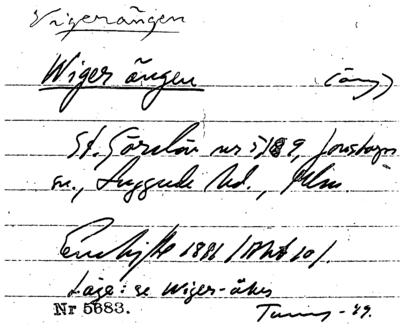 Vigerängen
Wiger ängen (äng)
St. Görslöv nr 5/89, Jonstorps
sn., Luggude hd., Mlm.
Enskifte 1881 /Akt 10/.
Läge: se Wiger-åker
Nr 5683. -49.